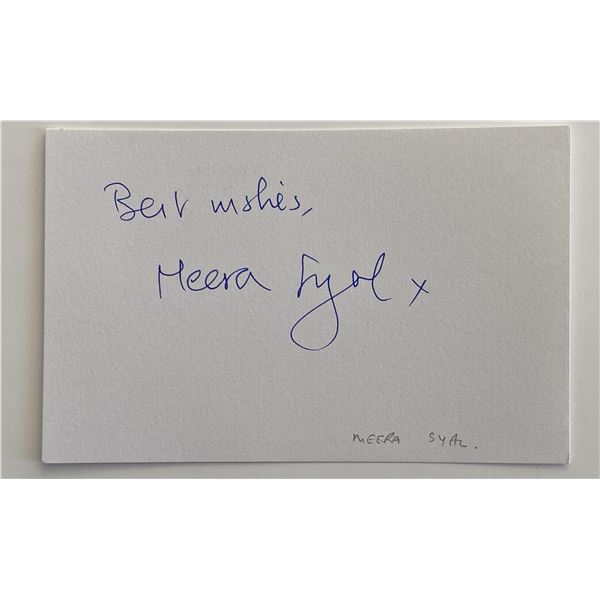 Best wishes,
Meera Syal x
MEERA SYAL.